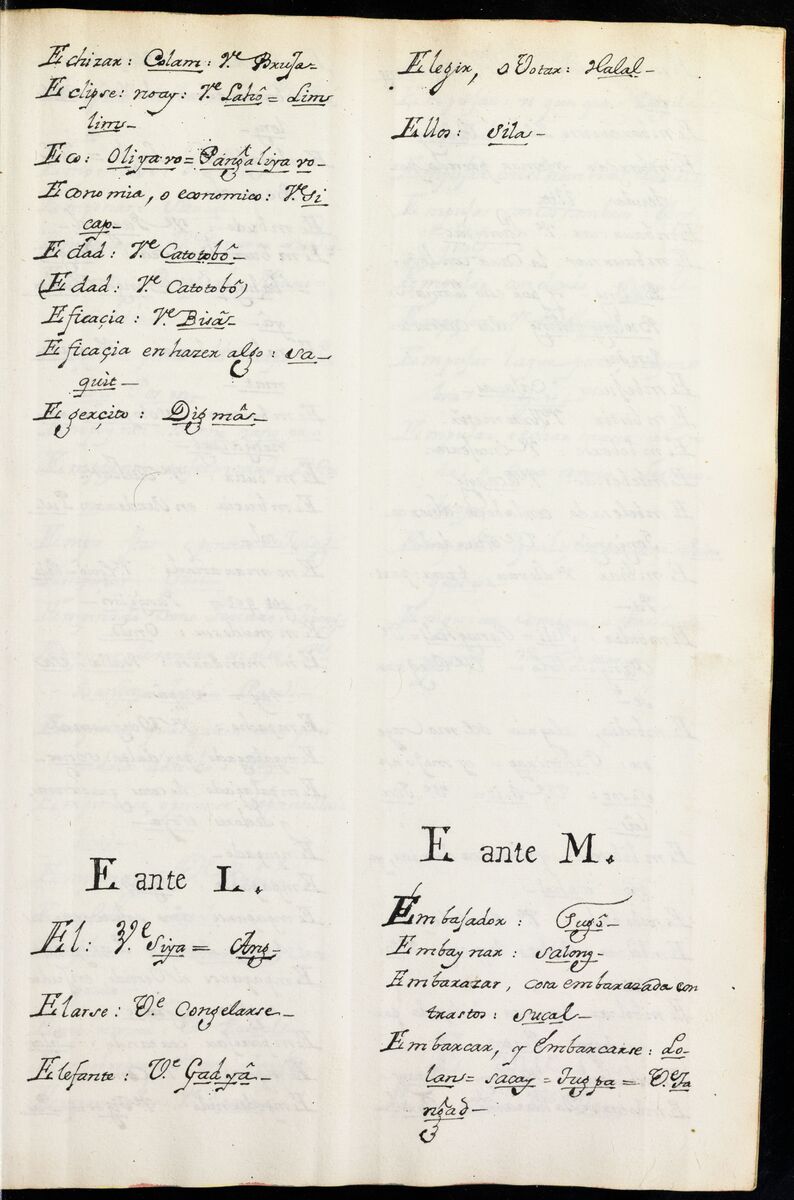 Echizar: Colam: Vͤ Bruja=
Eclipse: noay: Vͤ Lahô= Lims
lims-
Eco: Oliyavo= Pang̃aliyavo-
Economia, o economico: Vͤ Si
cap-
Edad: Vͤ Catotobô-
(Edad: Vͤ Catotobô)
Eficacia: Vͤ Bisâ-
Eficaçia en hazer algo: Sa-
quit-
Egerçito: Digmâ-
E ante L.
El: Vͤ Siya= Ang-
Elarse: Vͤ Congelarse-
Elefante: Vͤ Gadyâ-
Elegir, o Votar: Halal-
Ellos: Sila-
E ante M.
Embajador: Sugô-
Embaynar: Salong-
Embarazar, cosa embarazada con
trastos: Suçal-
Embarcar, y Embarcarse: Lo-
lan= Sacay= Tugpa= Vͤ Ta
ng̃ad-